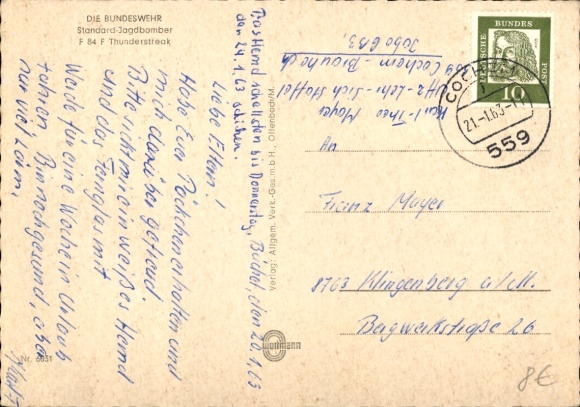 DIE BUNDESWEHR
Standard-Jagdbomber
F 84 F Thunderstreak
Büchel, den 20.1.63
Liebe Eltern!
Habe Euer Päckchen erhalten und
mich darüber gefreut.
Bitte schickt mir ein weißes Hemd
und das Fernglas mit
Werde für eine Woche in Urlaub
fahren. Bin noch gesund, aber
nur viel Lärm.
Das Hemd schnell, den bis Donnerstag,
den 24.1.63 schicken.
Nr. 6631
Verlag: Allgem. Verk.-Ges.m.b.H., Offenbach/M.
Wollmann
Karl-Theo Mayer
Cochem-Brauheck
Jabo G 33,
DEUTSCHE BUNDES POST
10
COCHEM
21.-1.63.-11
559
An
Franz Mayer
8763 Klingenberg a/M.
Bergwerkstraße 26
8€